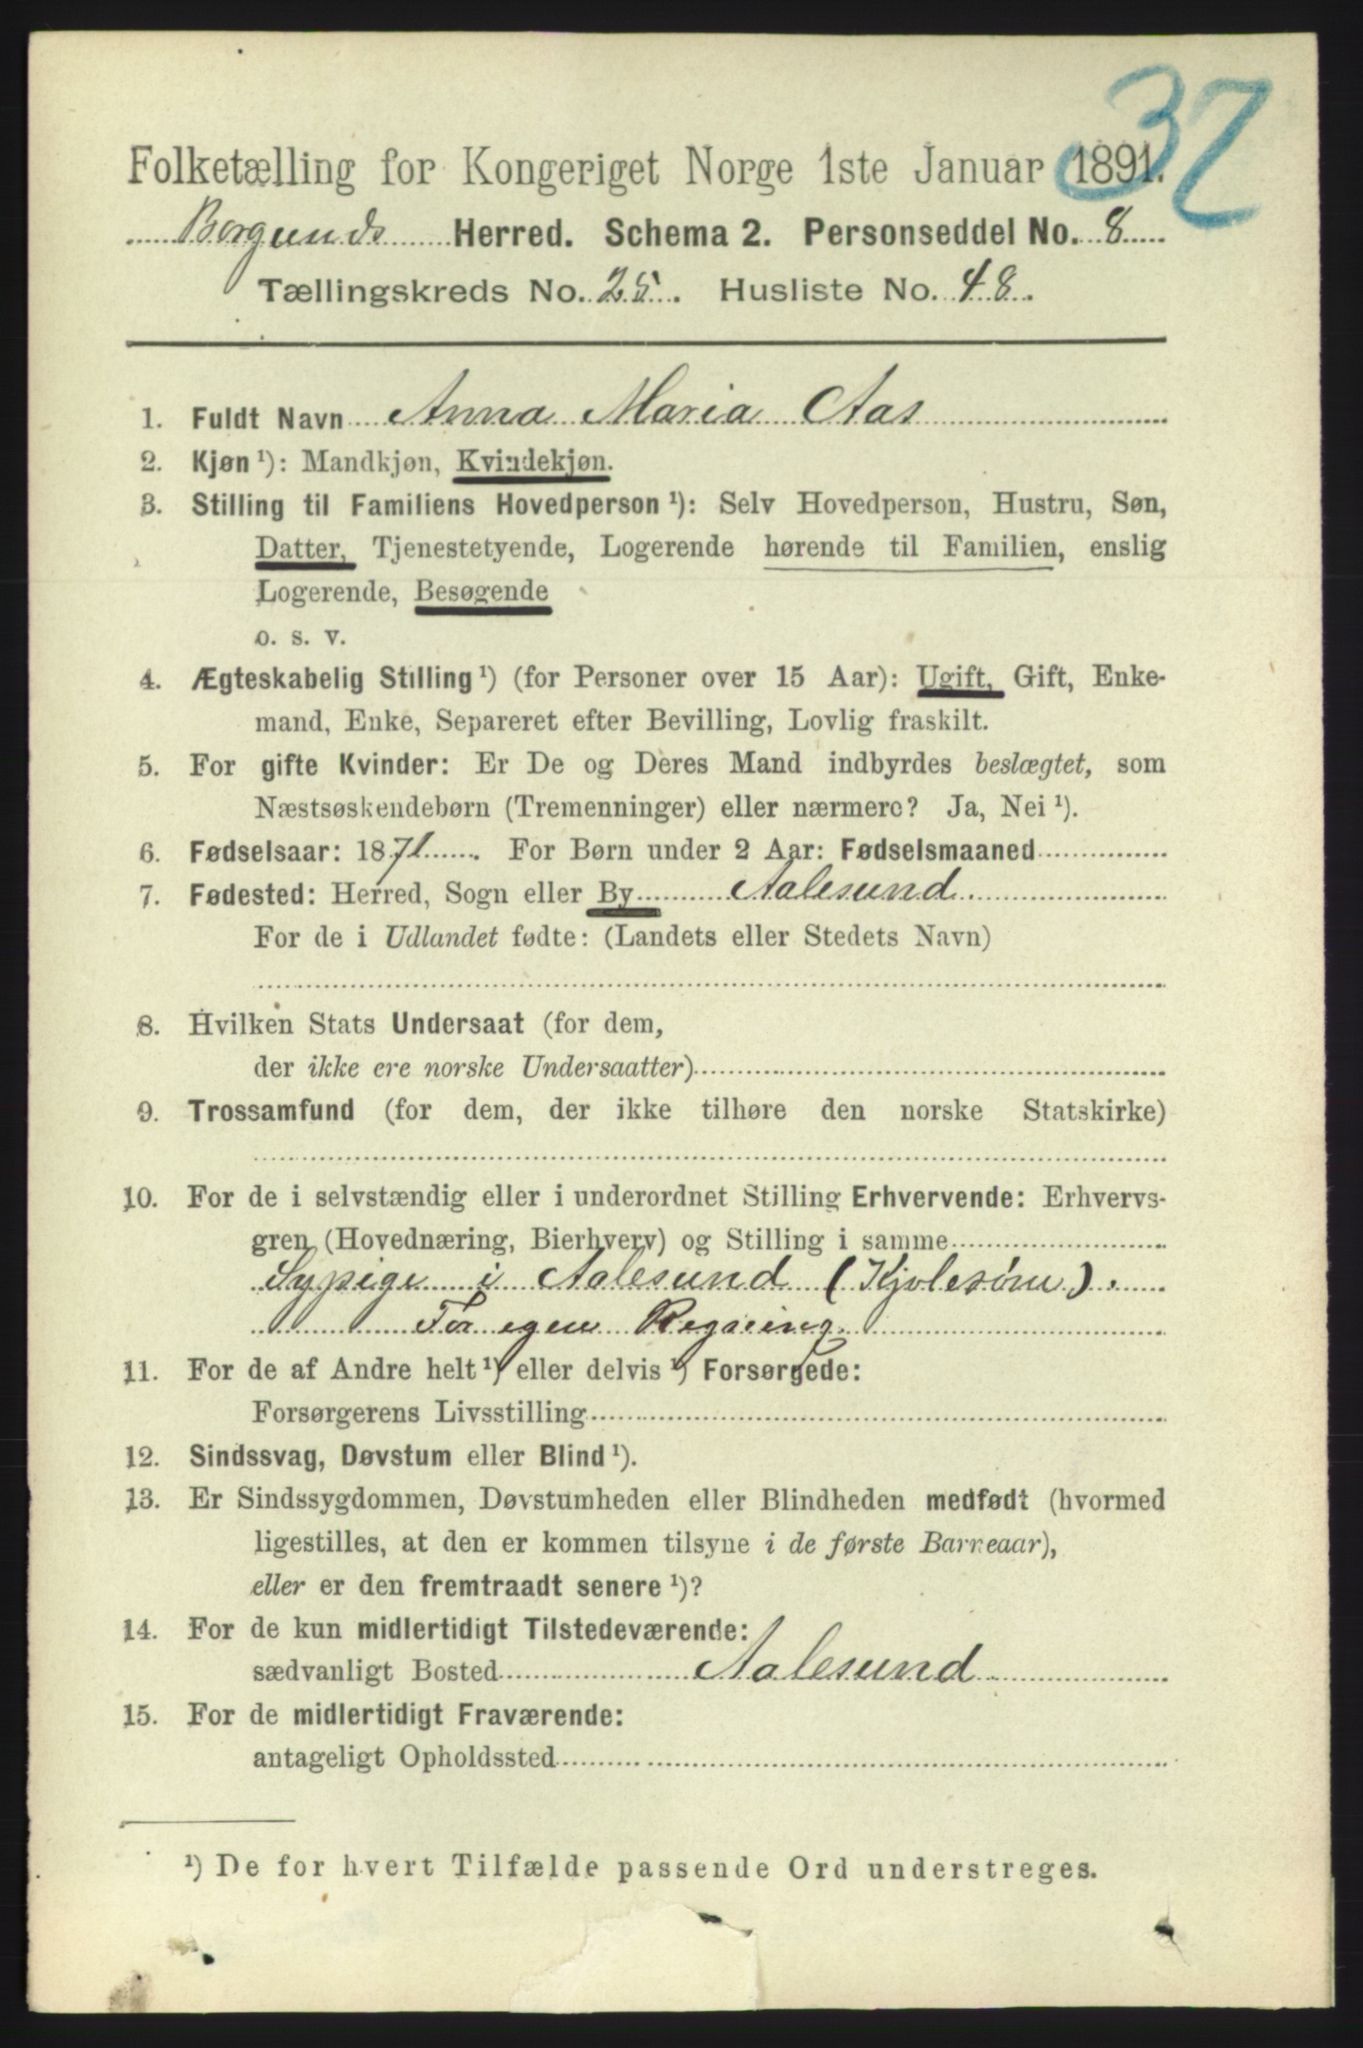 32
Folketælling for Kongeriget Norge 1ste Januar 1891.
Borgunds Herred. Schema 2. Personseddel No. 8
Tællingskreds No. 25. Husliste No. 48.
1. Fuldt Navn Anna Maria Aas
2. Kjøn ¹): Mandkjøn, Kvindekjøn.
3. Stilling til Familiens Hovedperson ¹): Selv Hovedperson, Hustru, Søn,
Datter, Tjenestetyende, Logerende hørende til Familien, enslig
Logerende, Besøgende
o. s. v.
4. Ægteskabelig Stilling ¹) (for Personer over 15 Aar): Ugift, Gift, Enke-
mand, Enke, Separeret efter Bevilling, Lovlig fraskilt.
5. For gifte Kvinder: Er De og Deres Mand indbyrdes beslægtet, som
Næstsøskendebørn (Tremenninger) eller nærmere? Ja, Nei ¹).
6. Fødselsaar: 1871. For Børn under 2 Aar: Fødselsmaaned
7. Fødested: Herred, Sogn eller By Aalesund
For de i Udlandet fødte: (Landets eller Stedets Navn)
8. Hvilken Stats Undersaat (for dem,
der ikke ere norske Undersaatter)
9. Trossamfund (for dem, der ikke tilhøre den norske Statskirke)
10. For de i selvstændig eller i underordnet Stilling Erhvervende: Erhvervs-
gren (Hovednæring, Bierhverv) og Stilling i samme
Sypige i Aalesund (Kjolesøm).
For egen Regning
11. For de af Andre helt ¹) eller delvis ¹) Forsørgede:
Forsørgerens Livsstilling
12. Sindssvag, Døvstum eller Blind ¹).
13. Er Sindssygdommen, Døvstumheden eller Blindheden medfødt (hvormed
ligestilles, at den er kommen tilsyne i de første Barneaar),
eller er den fremtraadt senere ¹)?
14. For de kun midlertidigt Tilstedeværende:
sædvanligt Bosted Aalesund
15. For de midlertidigt Fraværende:
antageligt Opholdssted
¹) De for hvert Tilfælde passende Ord understreges.